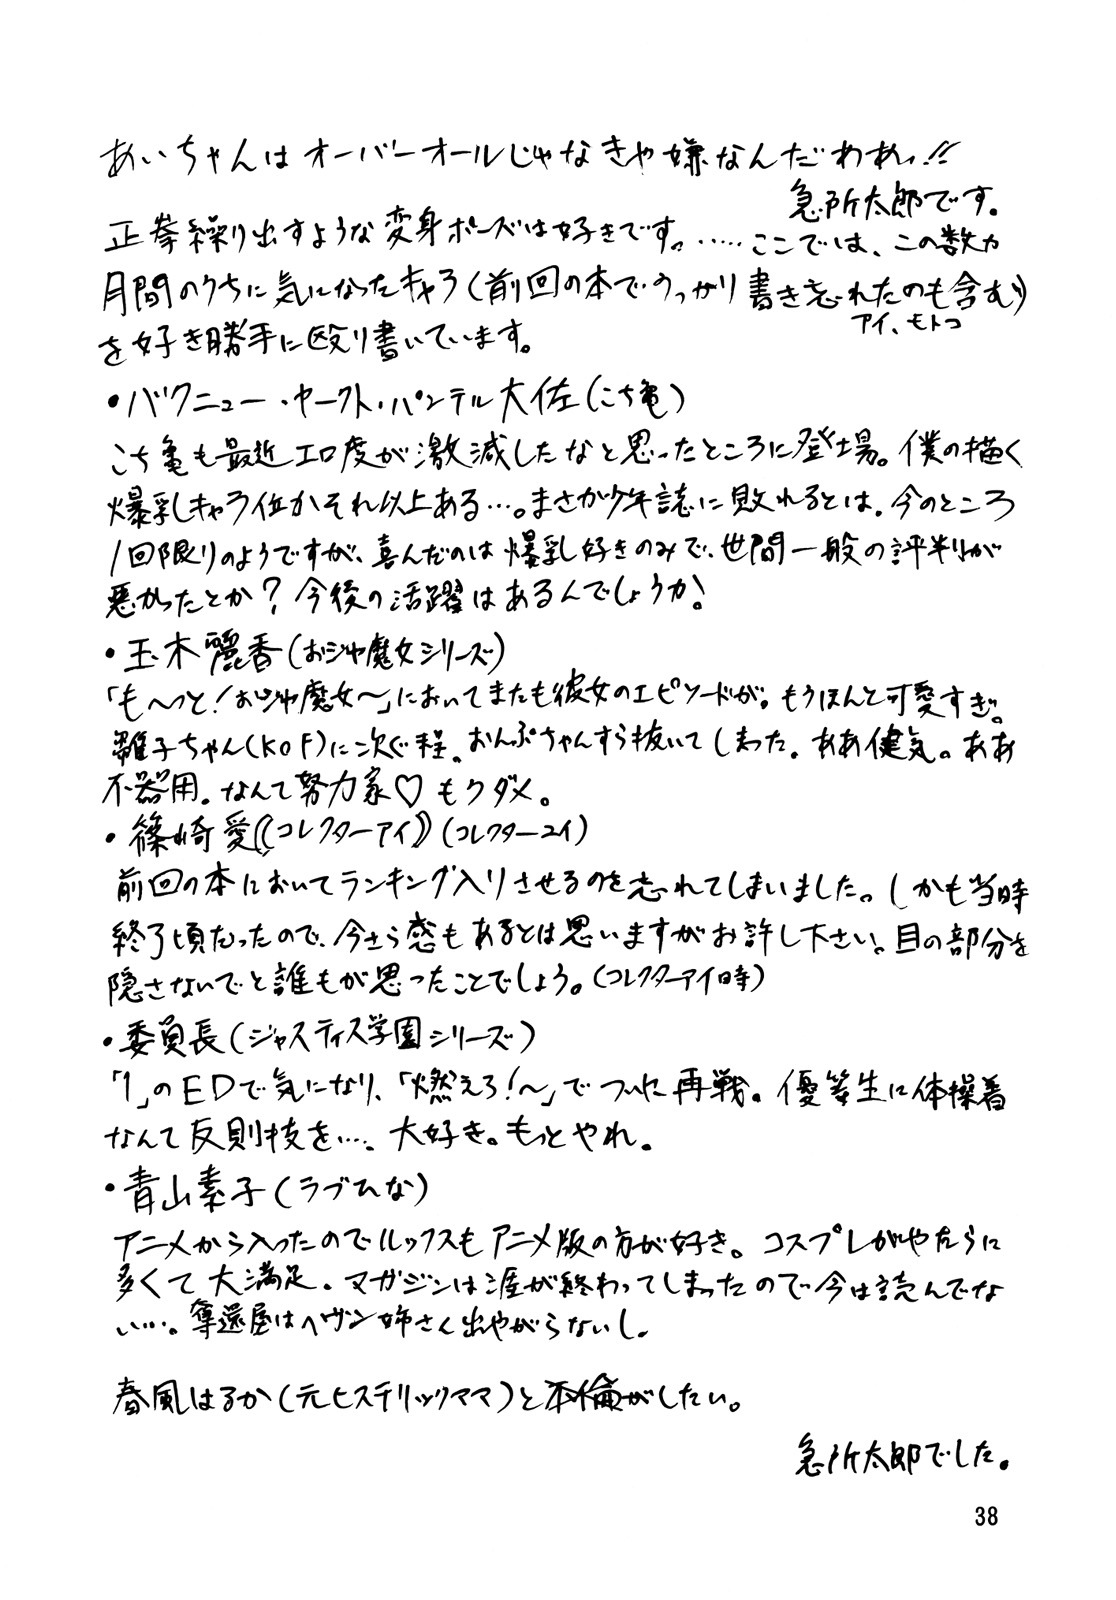 あいちゃんはオーバーオールじゃなきゃ嫌なんだわあっ!!
急所太郎です。
正拳繰り出すような変身ポーズは好きです。……ここでは、この数ヵ
月間のうちに気になったキャラ(前回の本でうっかり書き忘れたのも含む)
アイ、モトコ
を好き勝手に殴り書いています。
・バクニュー・ヤークト・パンテル大佐(こち亀)
こち亀も最近エロ度が激減したなと思ったところに登場。僕の描く
爆乳キャラ位かそれ以上ある…。まさか少年誌に敗れるとは。今のところ
1回限りのようですが、喜んだのは爆乳好きのみで、世間一般の評判が
悪かったとか?今後の活躍はあるんでしょうか!
・玉木麗香(おジャ魔女シリーズ)
「も〜っと!おジャ魔女〜」においてまたも彼女のエピソードが。もうほんと可愛すぎ。
雛子ちゃん(KOF)に次ぐ程。おんぷちゃんすら抜いてしまった。ああ健気。ああ
不器用。なんて努力家♡もうダメ。
・篠崎愛《コレクターアイ》(コレクターユイ)
前回の本においてランキング入りさせるのを忘れてしまいました。しかも当時
終了頃だったので、今さら感もあるとは思いますがお許し下さい。目の部分を
隠さないでと誰もが思ったことでしょう。(コレクターアイ時)
・委員長(ジャスティス学園シリーズ)
「1」のEDで気になり、「燃えろ!〜」でついに再戦。優等生に体操着
なんて反則技を…、大好き。もっとやれ。
・青山素子(ラブひな)
アニメから入ったのでルックスもアニメ版の方が好き。コスプレがやたらに
多くて大満足。マガジンは涯が終わってしまったので今は読んでな
い…。奪還屋はヘヴン姉さん出やがらないし。
春風はるか(元ヒステリックママ)と不倫がしたい。
急所太郎でした。
38